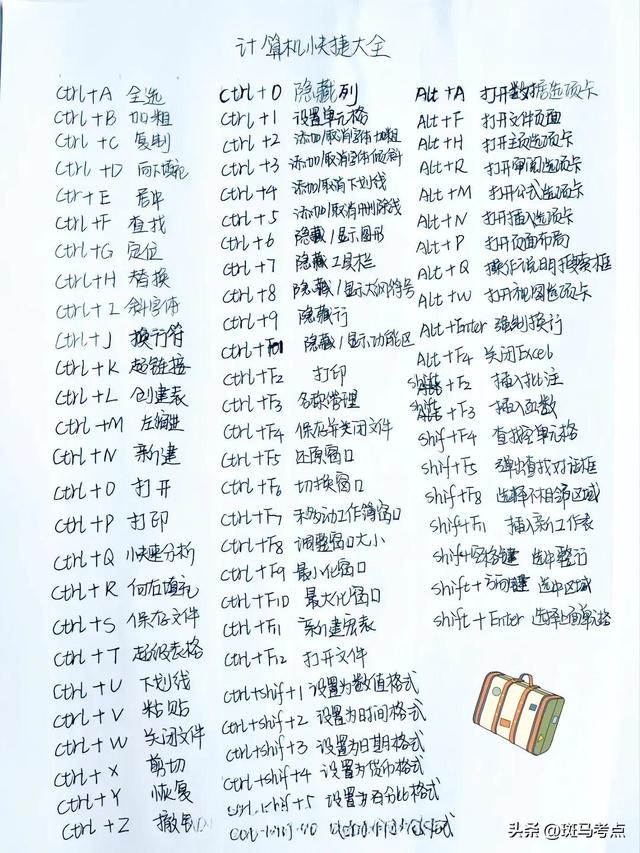 计算机快捷大全
Ctrl+A 全选
Ctrl+B 加粗
Ctrl+C 复制
Ctrl+D 向下填充
Ctr+E 居中
Ctrl+F 查找
Ctrl+G 定位
Ctrl+H 替换
Ctrl+I 斜字体
Ctrl+J 换行符
Ctrl+K 超链接
Ctrl+L 创建表
Ctrl+M 左缩进
Ctrl+N 新建
Ctrl+O 打开
Ctrl+P 打印
Ctrl+Q 快速分析
Ctrl+R 向右填充
Ctrl+S 保存文件
Ctrl+T 超级表格
Ctrl+U 下划线
Ctrl+V 粘贴
Ctrl+W 关闭文件
Ctrl+X 剪切
Ctrl+Y 恢复
Ctrl+Z 撤
Ctrl+0 隐藏列
Ctrl+1 设置单元格
Ctrl+2 添加/取消字体加粗
Ctrl+3 添加/取消字体倾斜
Ctrl+4 添加/取消下划线
Ctrl+5 添加/取消删除线
Ctrl+6 隐藏/显示图形
Ctrl+7 隐藏工具栏
Ctrl+8 隐藏/显示大纲符号
Ctrl+9 隐藏行
Ctrl+F1 隐藏/显示功能区
Ctrl+F2 打印
Ctrl+F3 名称管理
Ctrl+F4 保存并关闭文件
Ctrl+F5 还原窗口
Ctrl+F6 切换窗口
Ctrl+F7 移动工作簿窗口
Ctrl+F8 调整窗口大小
Ctrl+F9 最小化窗口
Ctrl+F10 最大化窗口
Ctrl+F11 新建宏表
Ctrl+F12 打开文件
Ctrl+shif+1 设置为数值格式
Ctrl+shif+2 设置为时间格式
Ctrl+shif+3 设置为日期格式
Ctrl+shif+4 设置为货币格式
Ctrl+shif+5 设置为百分比格式
Alt+A 打开数据选项卡
Alt+F 打开文件页面
Alt+H 打开主页选项卡
Alt+R 打开审阅选项卡
Alt+M 打开公式选项卡
Alt+N 打开插入选项卡
Alt+P 打开页面布局
Alt+Q 操作说明搜索框
Alt+W 打开视图选项卡
Alt+Enter 强制换行
Alt+F4 关闭Excel
shift+F2 插入批注
shift+F3 插入函数
shif+F4 查找空单元格
shif+F5 弹出查找对话框
shif+F8 选择不相邻区域
shif+F11 插入新工作表
shift+空格键 选中整行
shift+方向键 选中区域
shift+Enter 选择上面单元格
头条@斑马考点